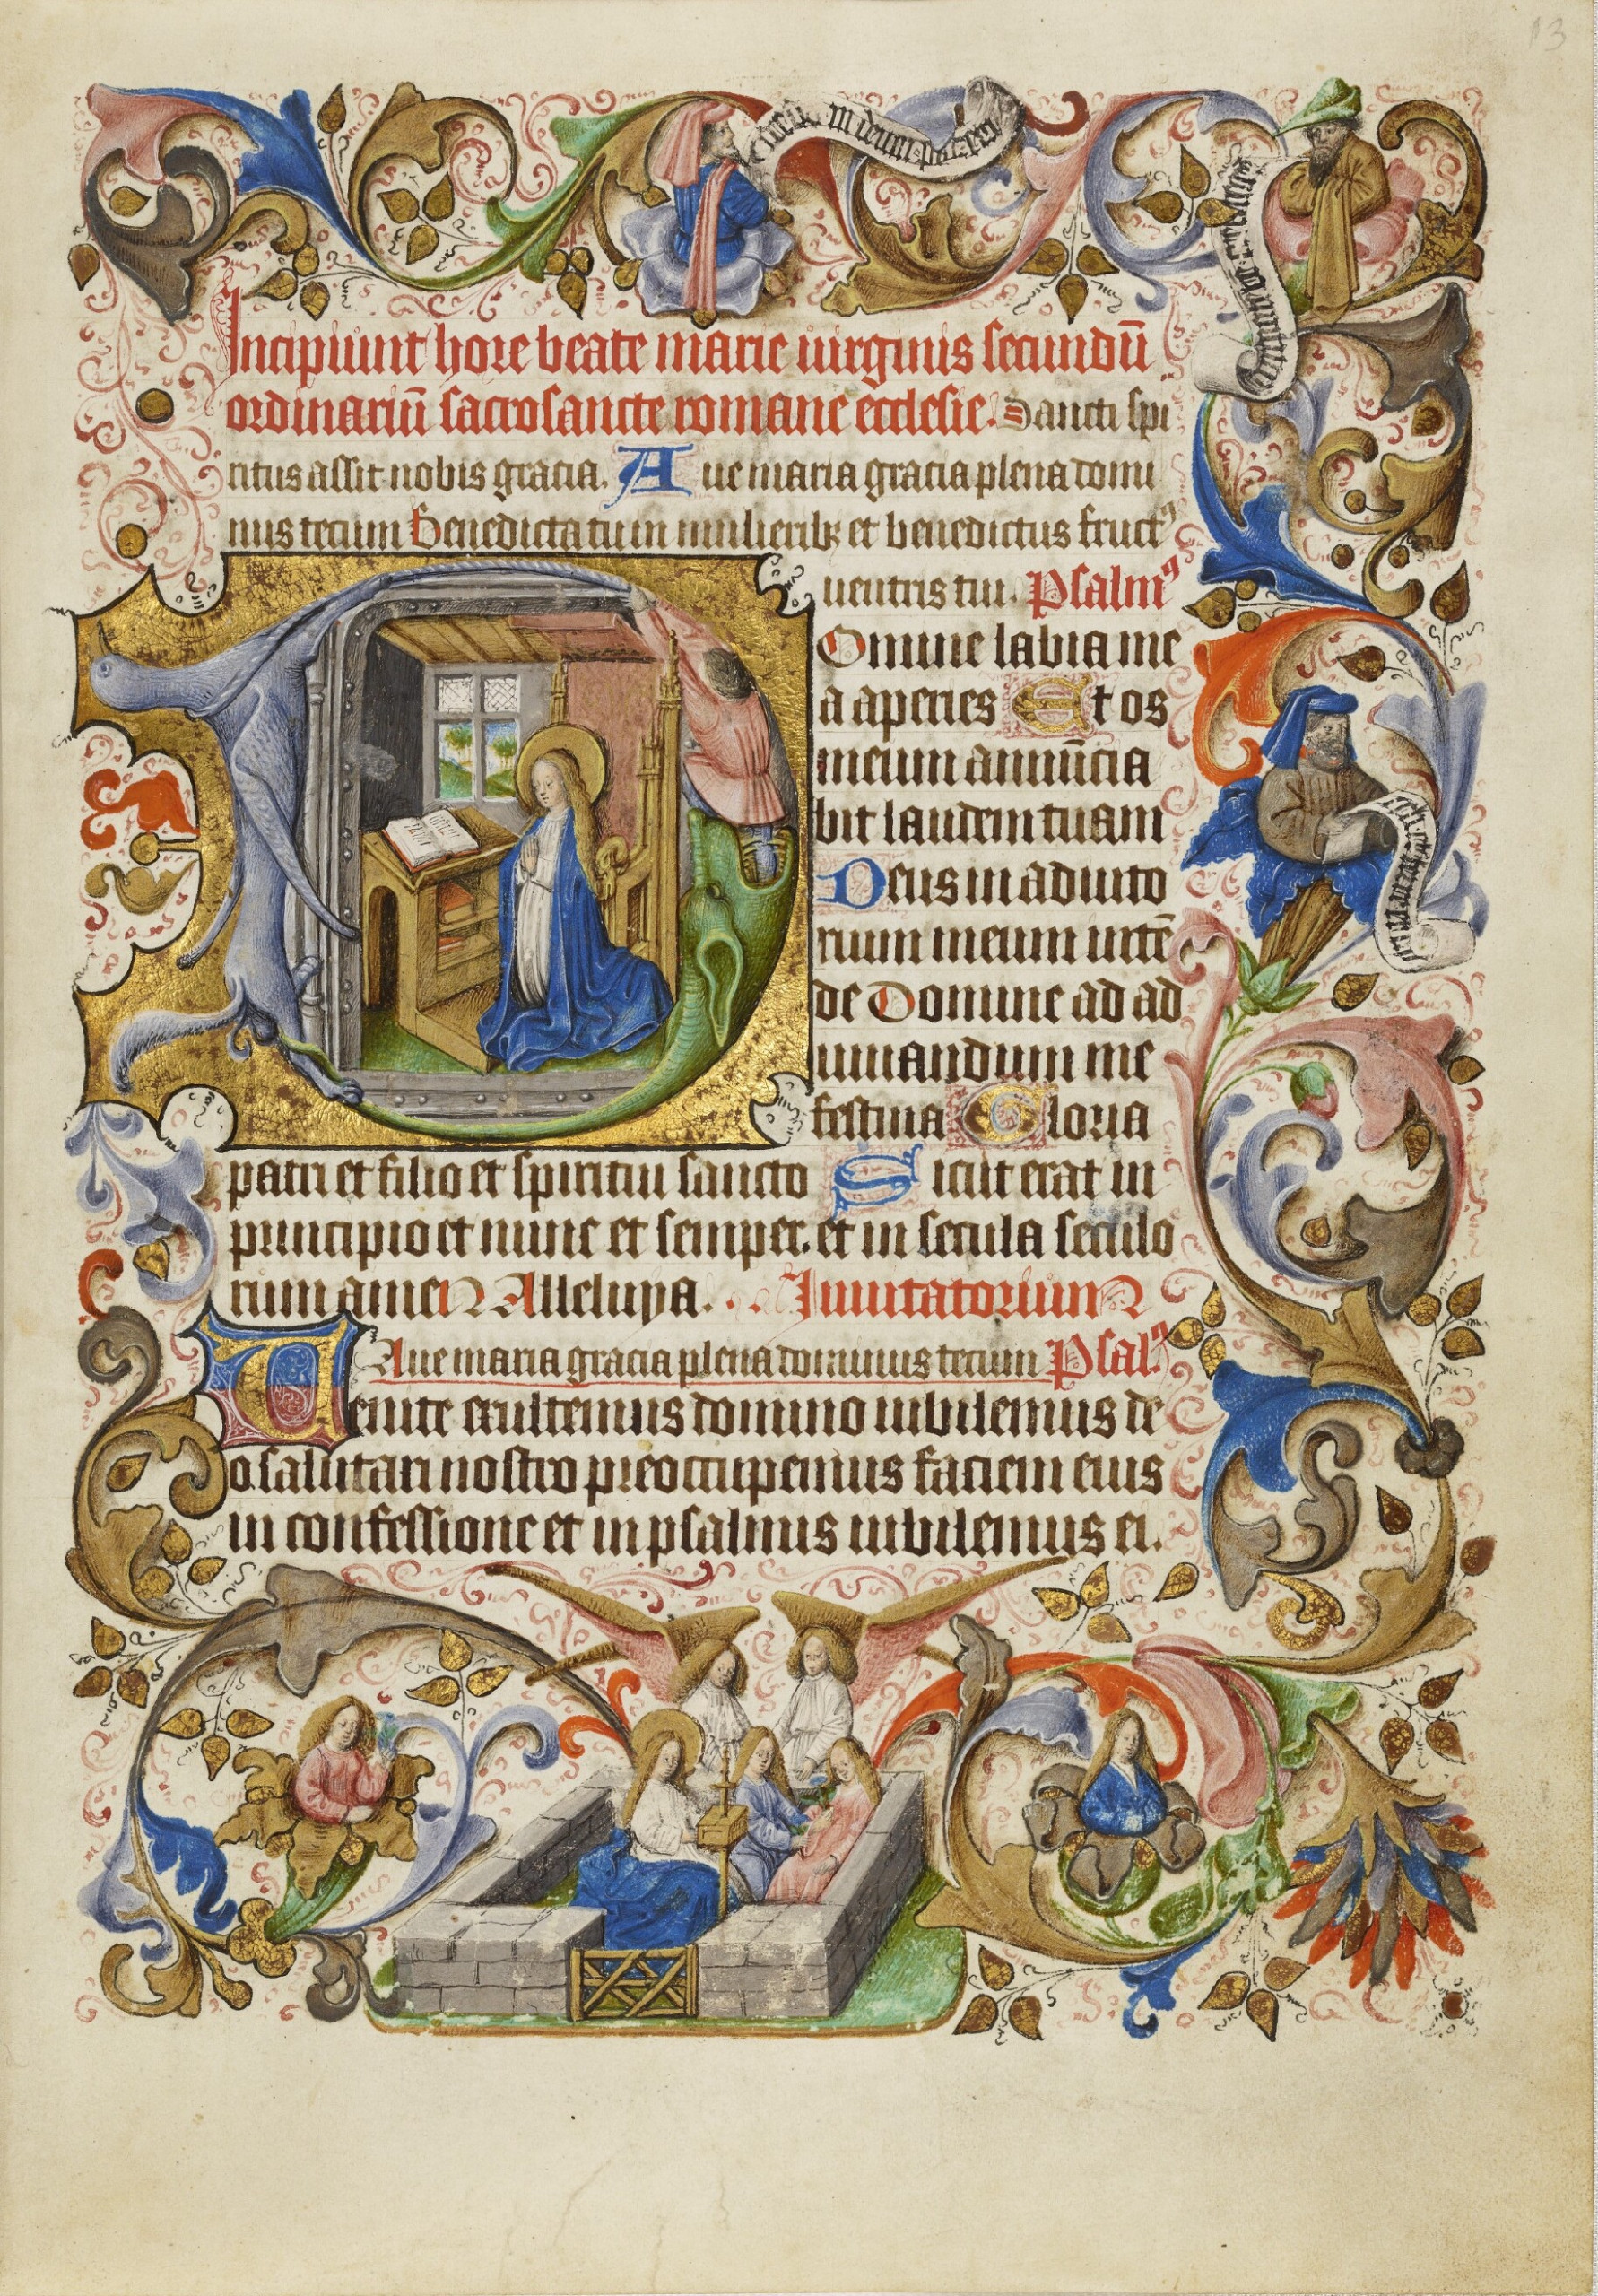 13
Incipiunt hore beate marie uirginis secundū
ordinariū sacrosancte romane ecclesie. Sancti spi
ritus assit nobis gracia. Aue maria gracia plena domi
nus tecum Benedicta tu in mulieribꝫ et benedictus fructꝰ
uentris tui. Psalmꝰ
Domine labia me
a aperies Et os
meum annūcia
bit laudem tuam
Deus in adiuto
rium meum intē
de Domine ad ad
iuuandum me
festina Gloria
patri et filio et spiritui sancto Sicut erat in
principio et nunc et semper. et in secula seculo
rum amen Alleluya. Inuitatorium
Aue maria gracia plena dominus tecum Psalꝰ
Uenite exultemus domino iubilemus de
o salutari nostro preoccupemus faciem eius
in confessione et in psalmis iubilemus ei.